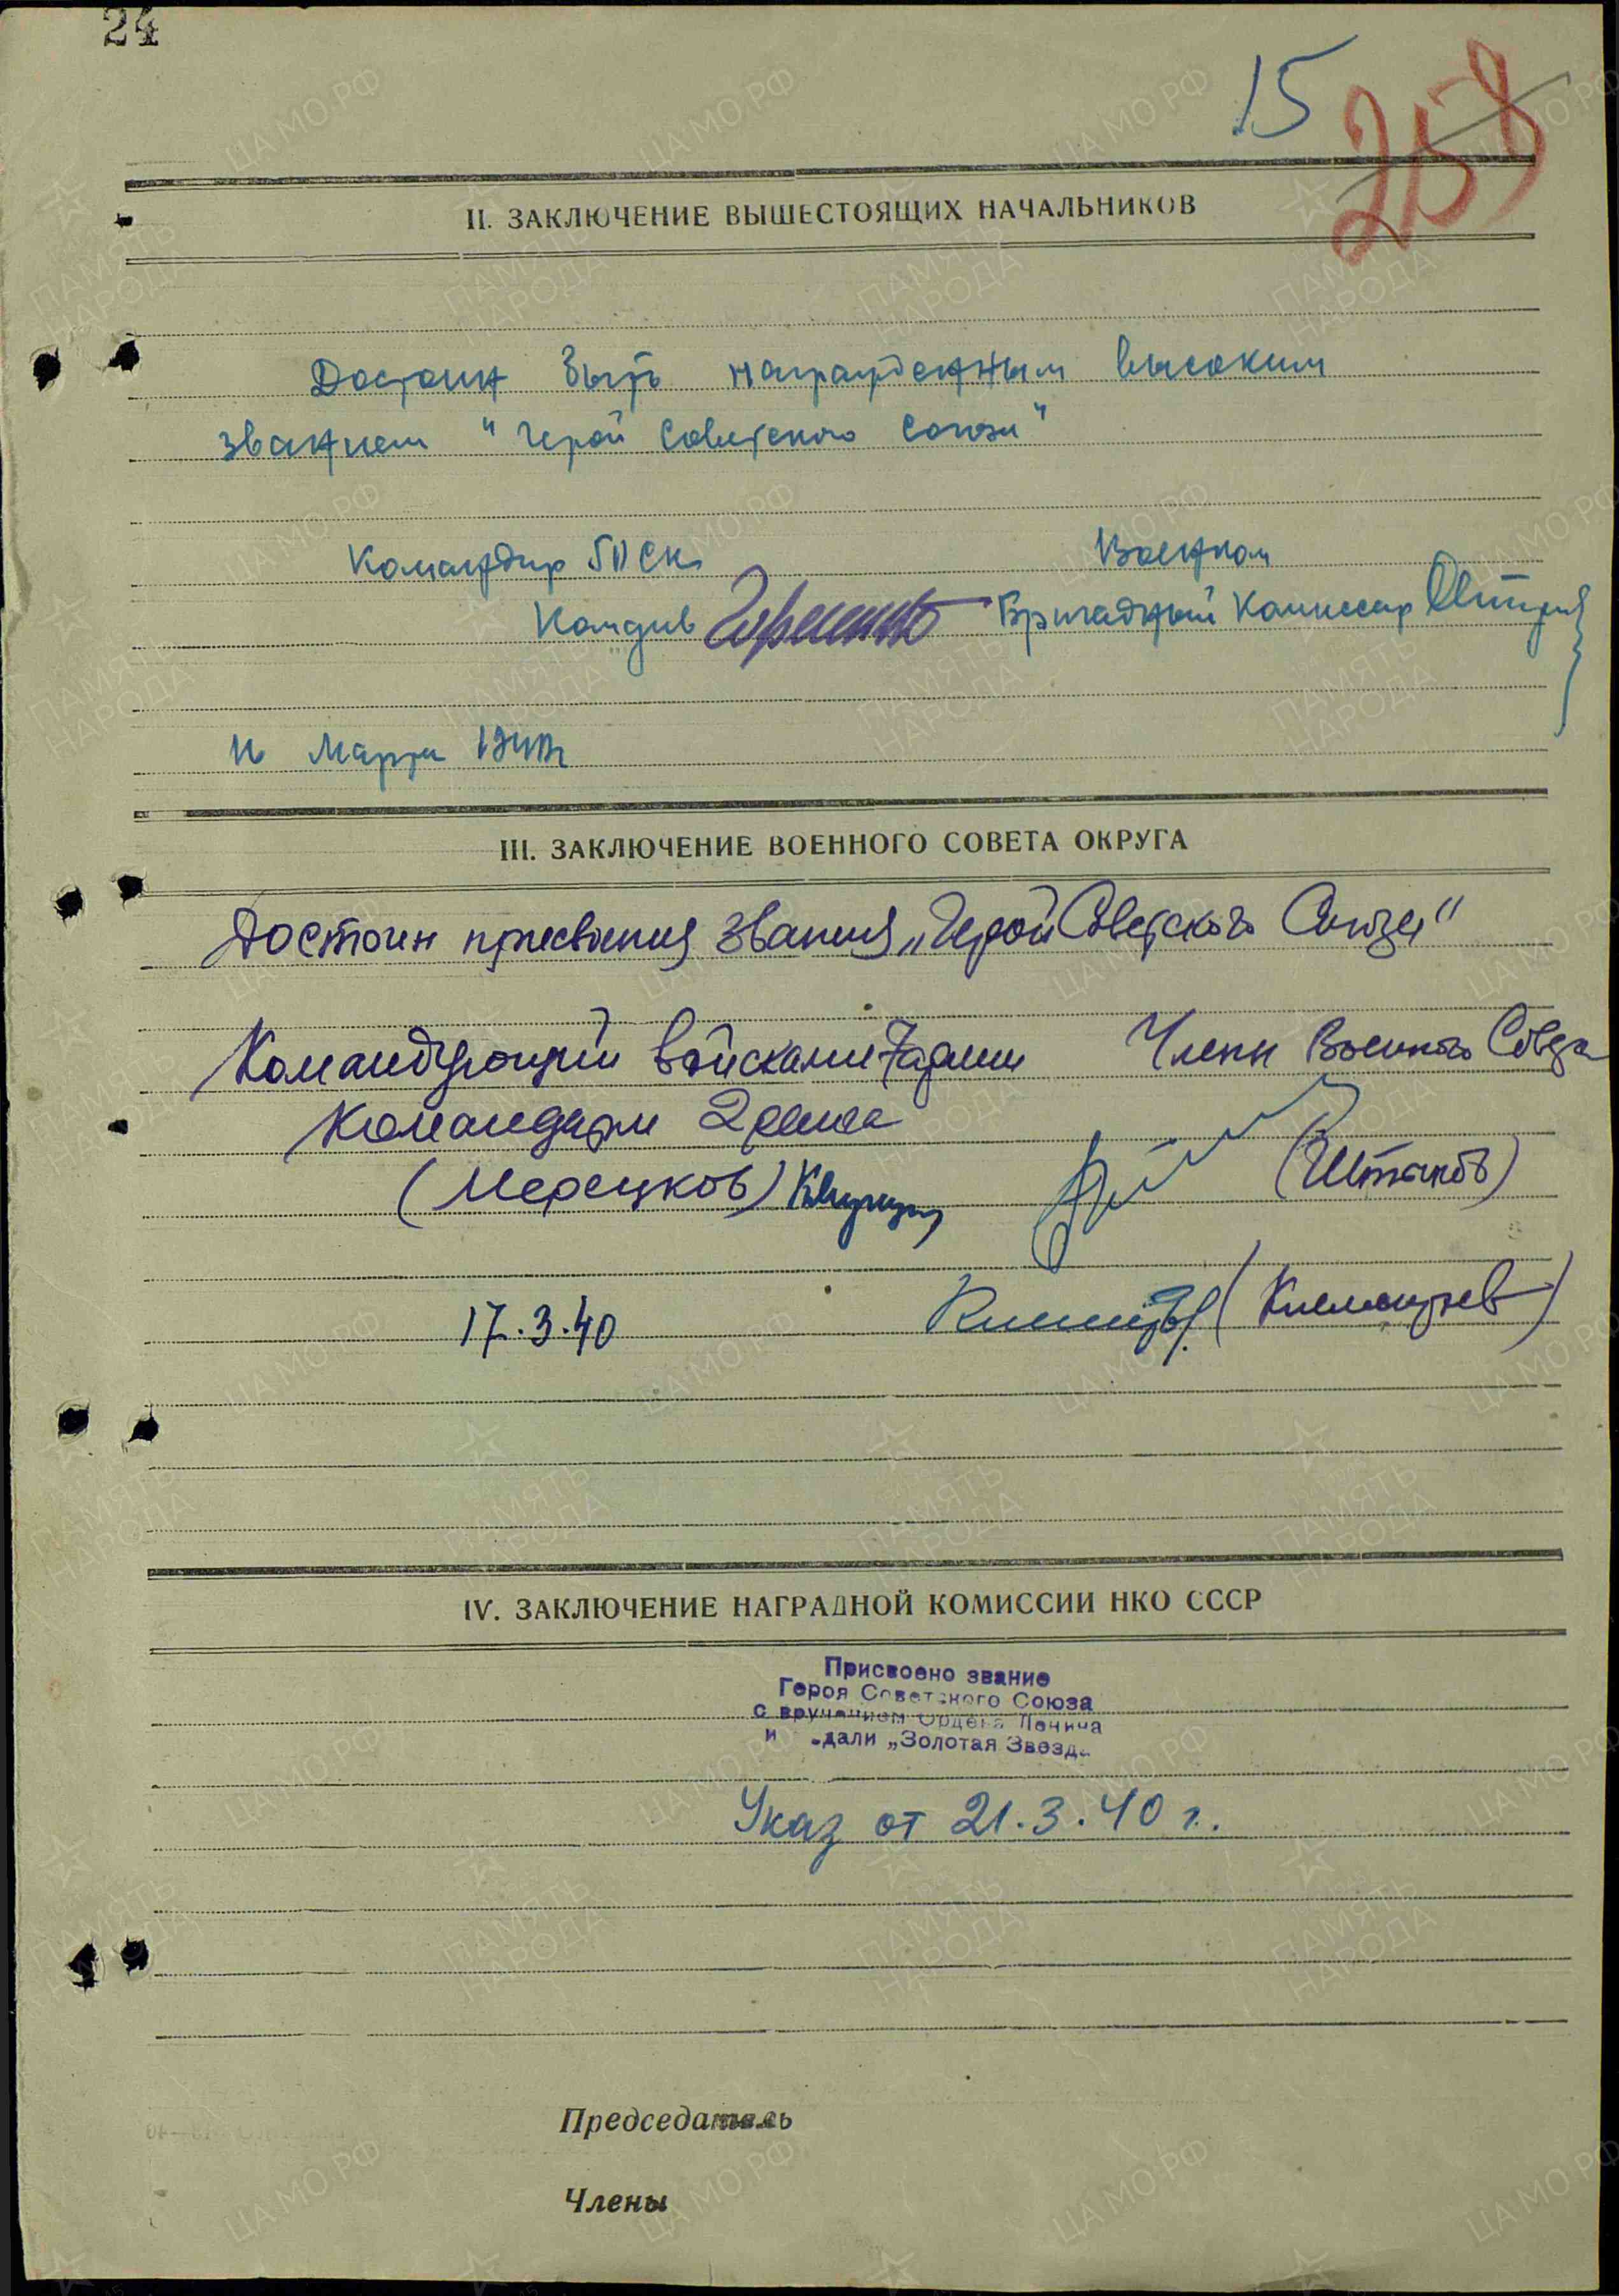 24
15
259
II. ЗАКЛЮЧЕНИЕ ВЫШЕСТОЯЩИХ НАЧАЛЬНИКОВ
Достоин быть награжденным высоким
званием "Герой Советского Союза"
Командир 50 Ск. Военком
Комдив Гореленко Бригадный Комиссар
Марта 1940г
III. ЗАКЛЮЧЕНИЕ ВОЕННОГО СОВЕТА ОКРУГА
Достоин присвоения звания „Герой Советского Союза"
Командующий войсками 7 армии Члены Военного Совета
Командарм 2 ранга
(Мерецков) (Штыков)
17.3.40 (Клементьев)
IV. ЗАКЛЮЧЕНИЕ НАГРАДНОЙ КОМИССИИ НКО СССР
Присвоено звание
Героя Советского Союза
с вручением Ордена Ленина
и дали „Золотая Звезда
Указ от 21.3.40 г.
Председатель
Члены
ЦА МО РФ
ПАМЯТЬ НАРОДА